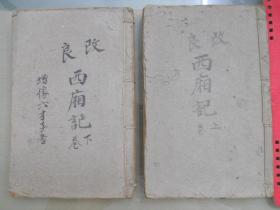 改良
西廂記
上卷
改良
西廂記
下卷
增像六才子書